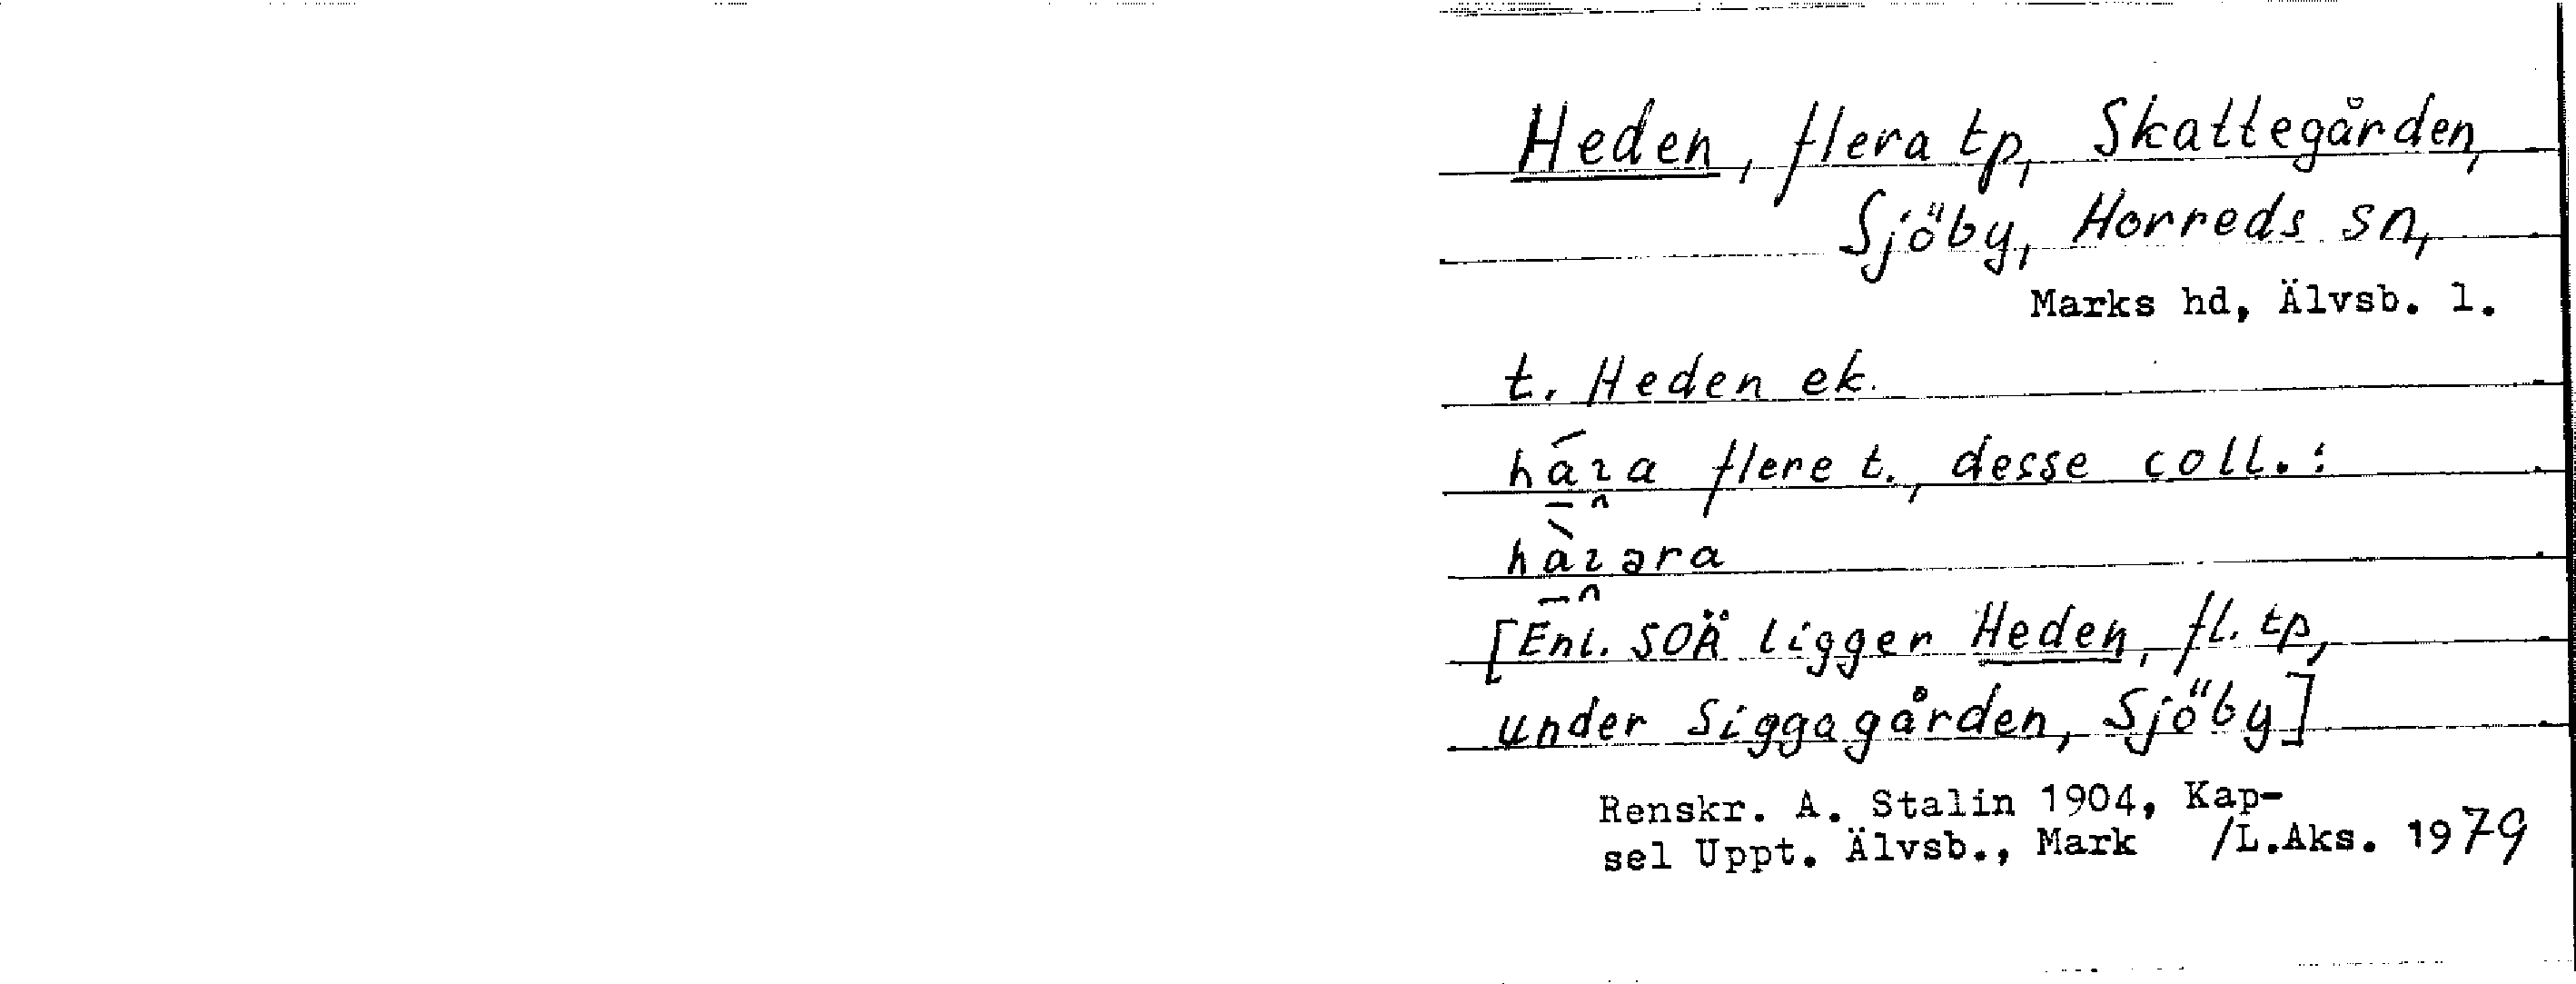 Heden, flera tp, Skattegården,
Sjöby, Horreds sn,
Marks hd, Älvsb. l.
t. Heden ek.
flere t., desse coll.:
[Enl. SOÄ ligger Heden, fl. tp,
under Siggagården, Sjöby]
Renskr. A. Stalin 1904, Kap-
sel Uppt. Älvsb., Mark /L.Aks. 1979